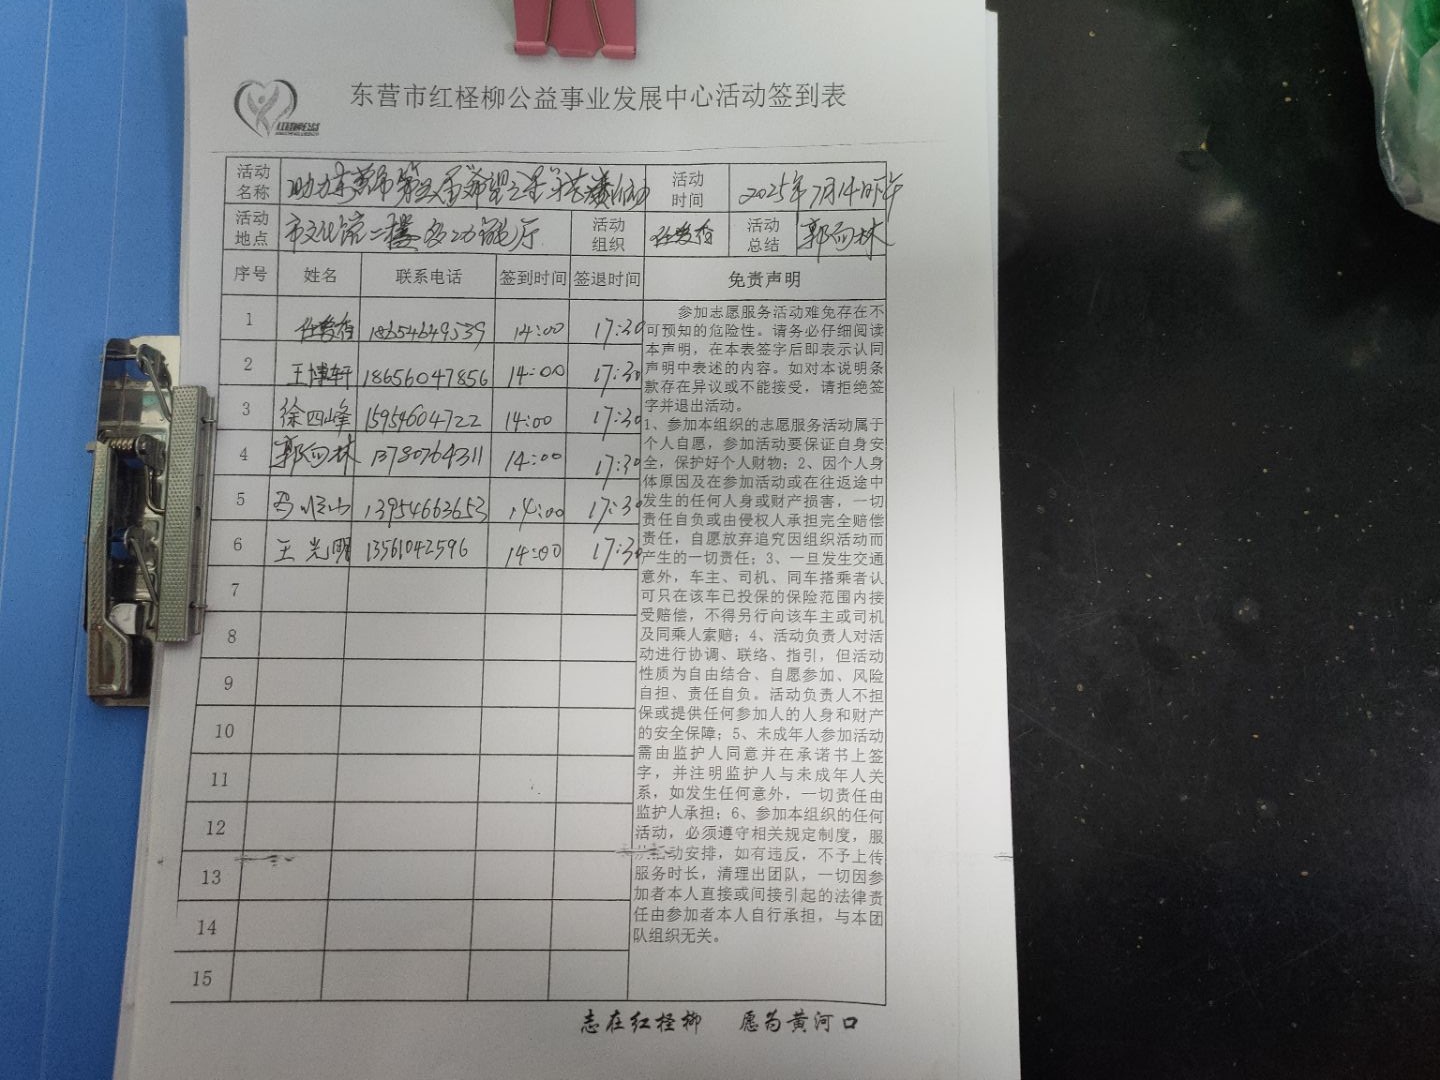 东营市红柽柳公益事业发展中心活动签到表
活动名称 助力东营市第五届希望之星 活动 活动时间 2025年7月14日下午
活动地点 市文化馆二楼多功能厅 活动组织 活动总结 郭向林
序号 姓名 联系电话 签到时间 签退时间 免责声明
1 18654649539 14:00 17:30
2 王博轩 18656047856 14:00 17:30
3 徐四峰 15954604722 14:00 17:30
4 郭向林 13780764311 14:00 17:30
5 13954663653 14:00 17:30
6 王光明 13561042596 14:00 17:30
7
8
9
10
11
12
13
14
15
参加志愿服务活动难免存在不
可预知的危险性。请务必仔细阅读
本声明，在本表签字后即表示认同
声明中表述的内容。如对本说明条
款存在异议或不能接受，请拒绝签
字并退出活动。
1、参加本组织的志愿服务活动属于
个人自愿，参加活动要保证自身安
全，保护好个人财物；2、因个人身
体原因及在参加活动或在往返途中
发生的任何人身或财产损害，一切
责任自负或由侵权人承担完全赔偿
责任，自愿放弃追究因组织活动而
产生的一切责任；3、一旦发生交通
意外，车主、司机、同车搭乘者认
可只在该车已投保的保险范围内接
受赔偿，不得另行向该车主或司机
及同乘人索赔；4、活动负责人对活
动进行协调、联络、指引，但活动
性质为自由结合、自愿参加、风险
自担、责任自负。活动负责人不担
保或提供任何参加人的人身和财产
的安全保障；5、未成年人参加活动
需由监护人同意并在承诺书上签
字，并注明监护人与未成年人关
系，如发生任何意外，一切责任由
监护人承担；6、参加本组织的任何
活动，必须遵守相关规定制度，服
从活动安排，如有违反，不予上传
服务时长，清理出团队，一切因参
加者本人直接或间接引起的法律责
任由参加者本人自行承担，与本团
队组织无关。
志在红柽柳 愿为黄河口